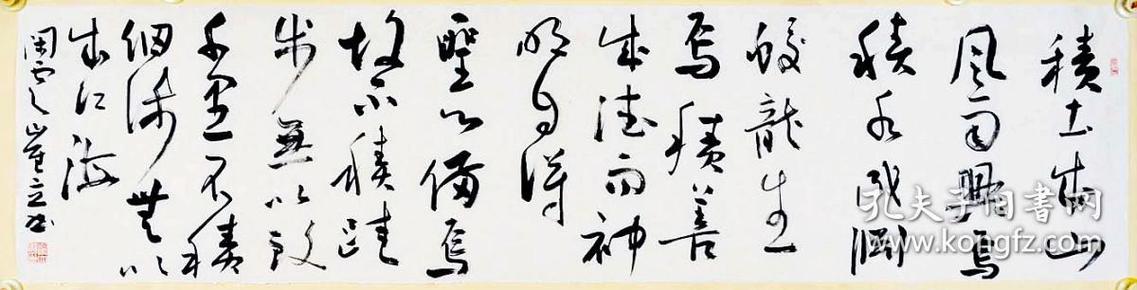 積土成山
風雨興焉
積水成淵
蛟龍生
焉積善
成德而神
明自得
聖心備焉
故不積跬
步無以致
千里不積
細流無以
成江海
崔立书
孔夫子旧书网
www.kongfz.com